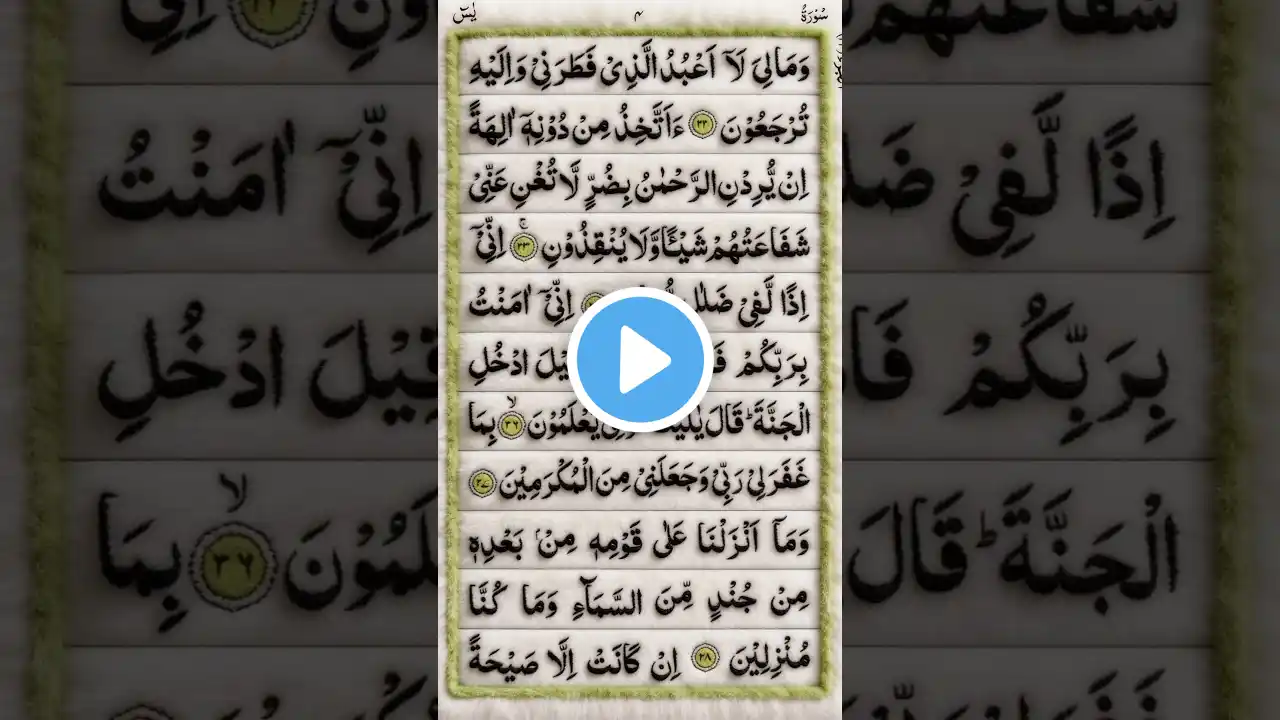 سُوْرَةُ ۴ يٰسٓ
وَمَالِیَ لَاۤ اَعْبُدُ الَّذِیْ فَطَرَنِیْ وَاِلَیْهِ
تُرْجَعُوْنَ ۲۲ ءَاَتَّخِذُ مِنْ دُوْنِهٖۤ اٰلِهَةً
اِنْ یُّرِدْنِ الرَّحْمٰنُ بِضُرٍّ لَّا تُغْنِ عَنِّیْ
شَفَاعَتُهُمْ شَیْـًٔا وَّلَا یُنْقِذُوْنِ ۲۳ اِنِّیْۤ
اِذًا لَّفِیْ ضَلٰلٍ اِنِّیْۤ اٰمَنْتُ
بِرَبِّكُمْ ادْخُلِ
الْجَنَّةَ ؕ قَالَ یٰلَیْتَ یَعْلَمُوْنَ ۲۶ بِمَا
غَفَرَلِیْ رَبِّیْ وَجَعَلَنِیْ مِنَ الْمُكْرَمِیْنَ ۲۷
وَمَاۤ اَنْزَلْنَا عَلٰی قَوْمِهٖ مِنْۢ بَعْدِهٖ
مِنْ جُنْدٍ مِّنَ السَّمَآءِ وَمَا كُنَّا
مُنْزِلِیْنَ ۲۸ اِنْ كَانَتْ اِلَّا صَیْحَةً